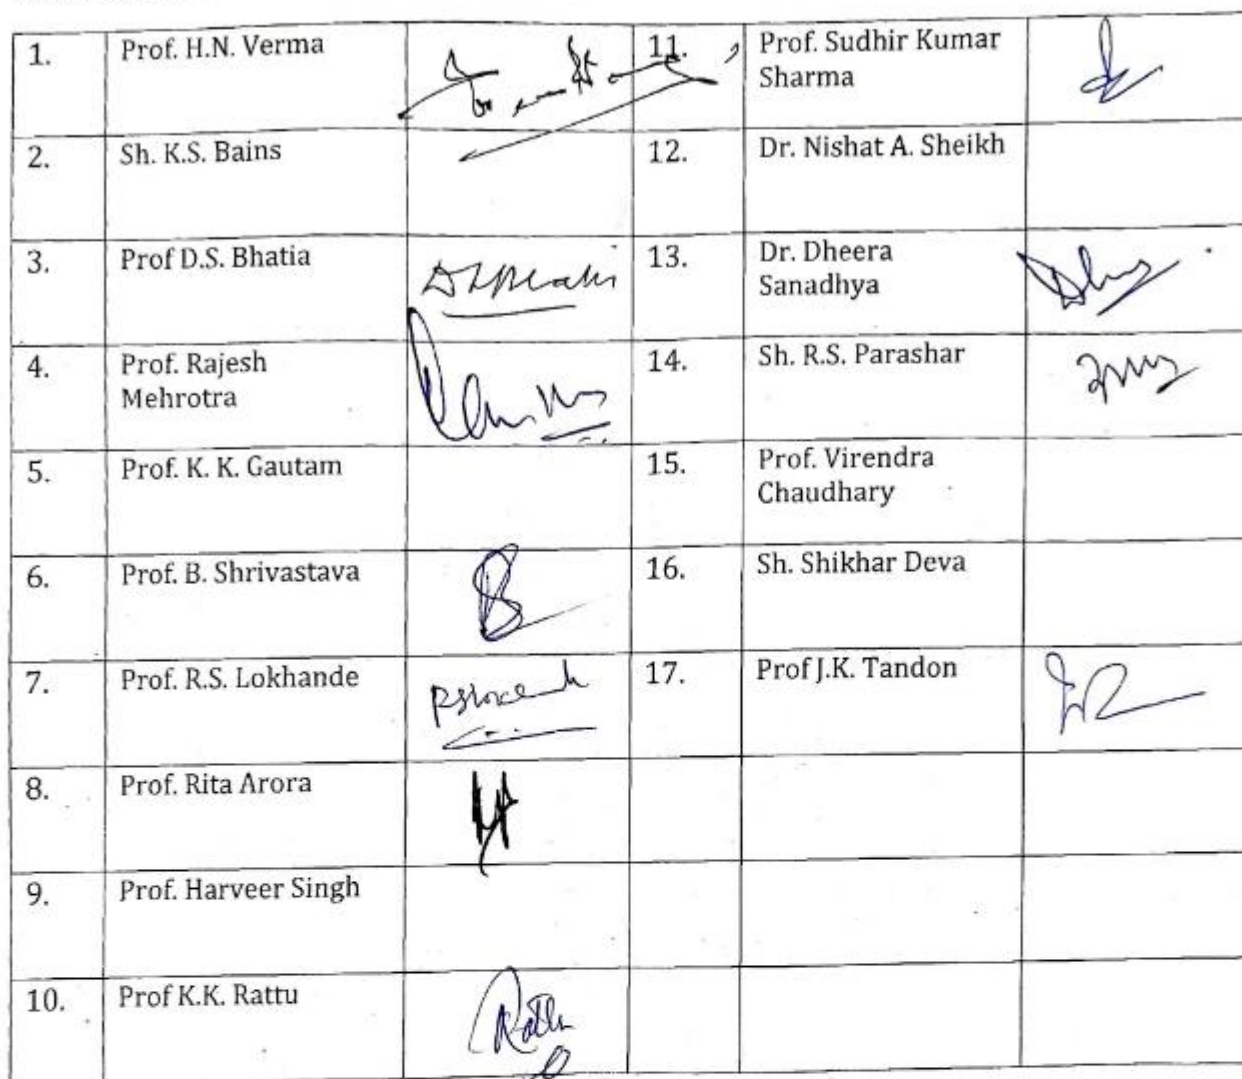 1. Prof. H.N. Verma 11. Prof. Sudhir Kumar
Sharma
2. Sh. K.S. Bains 12. Dr. Nishat A. Sheikh
3. Prof D.S. Bhatia 13. Dr. Dheera
Sanadhya
4. Prof. Rajesh 14. Sh. R.S. Parashar
Mehrotra
5. Prof. K. K. Gautam 15. Prof. Virendra
Chaudhary
6. Prof. B. Shrivastava 16. Sh. Shikhar Deva
7. Prof. R.S. Lokhande 17. Prof J.K. Tandon
8. Prof. Rita Arora
9. Prof. Harveer Singh
10. Prof K.K. Rattu